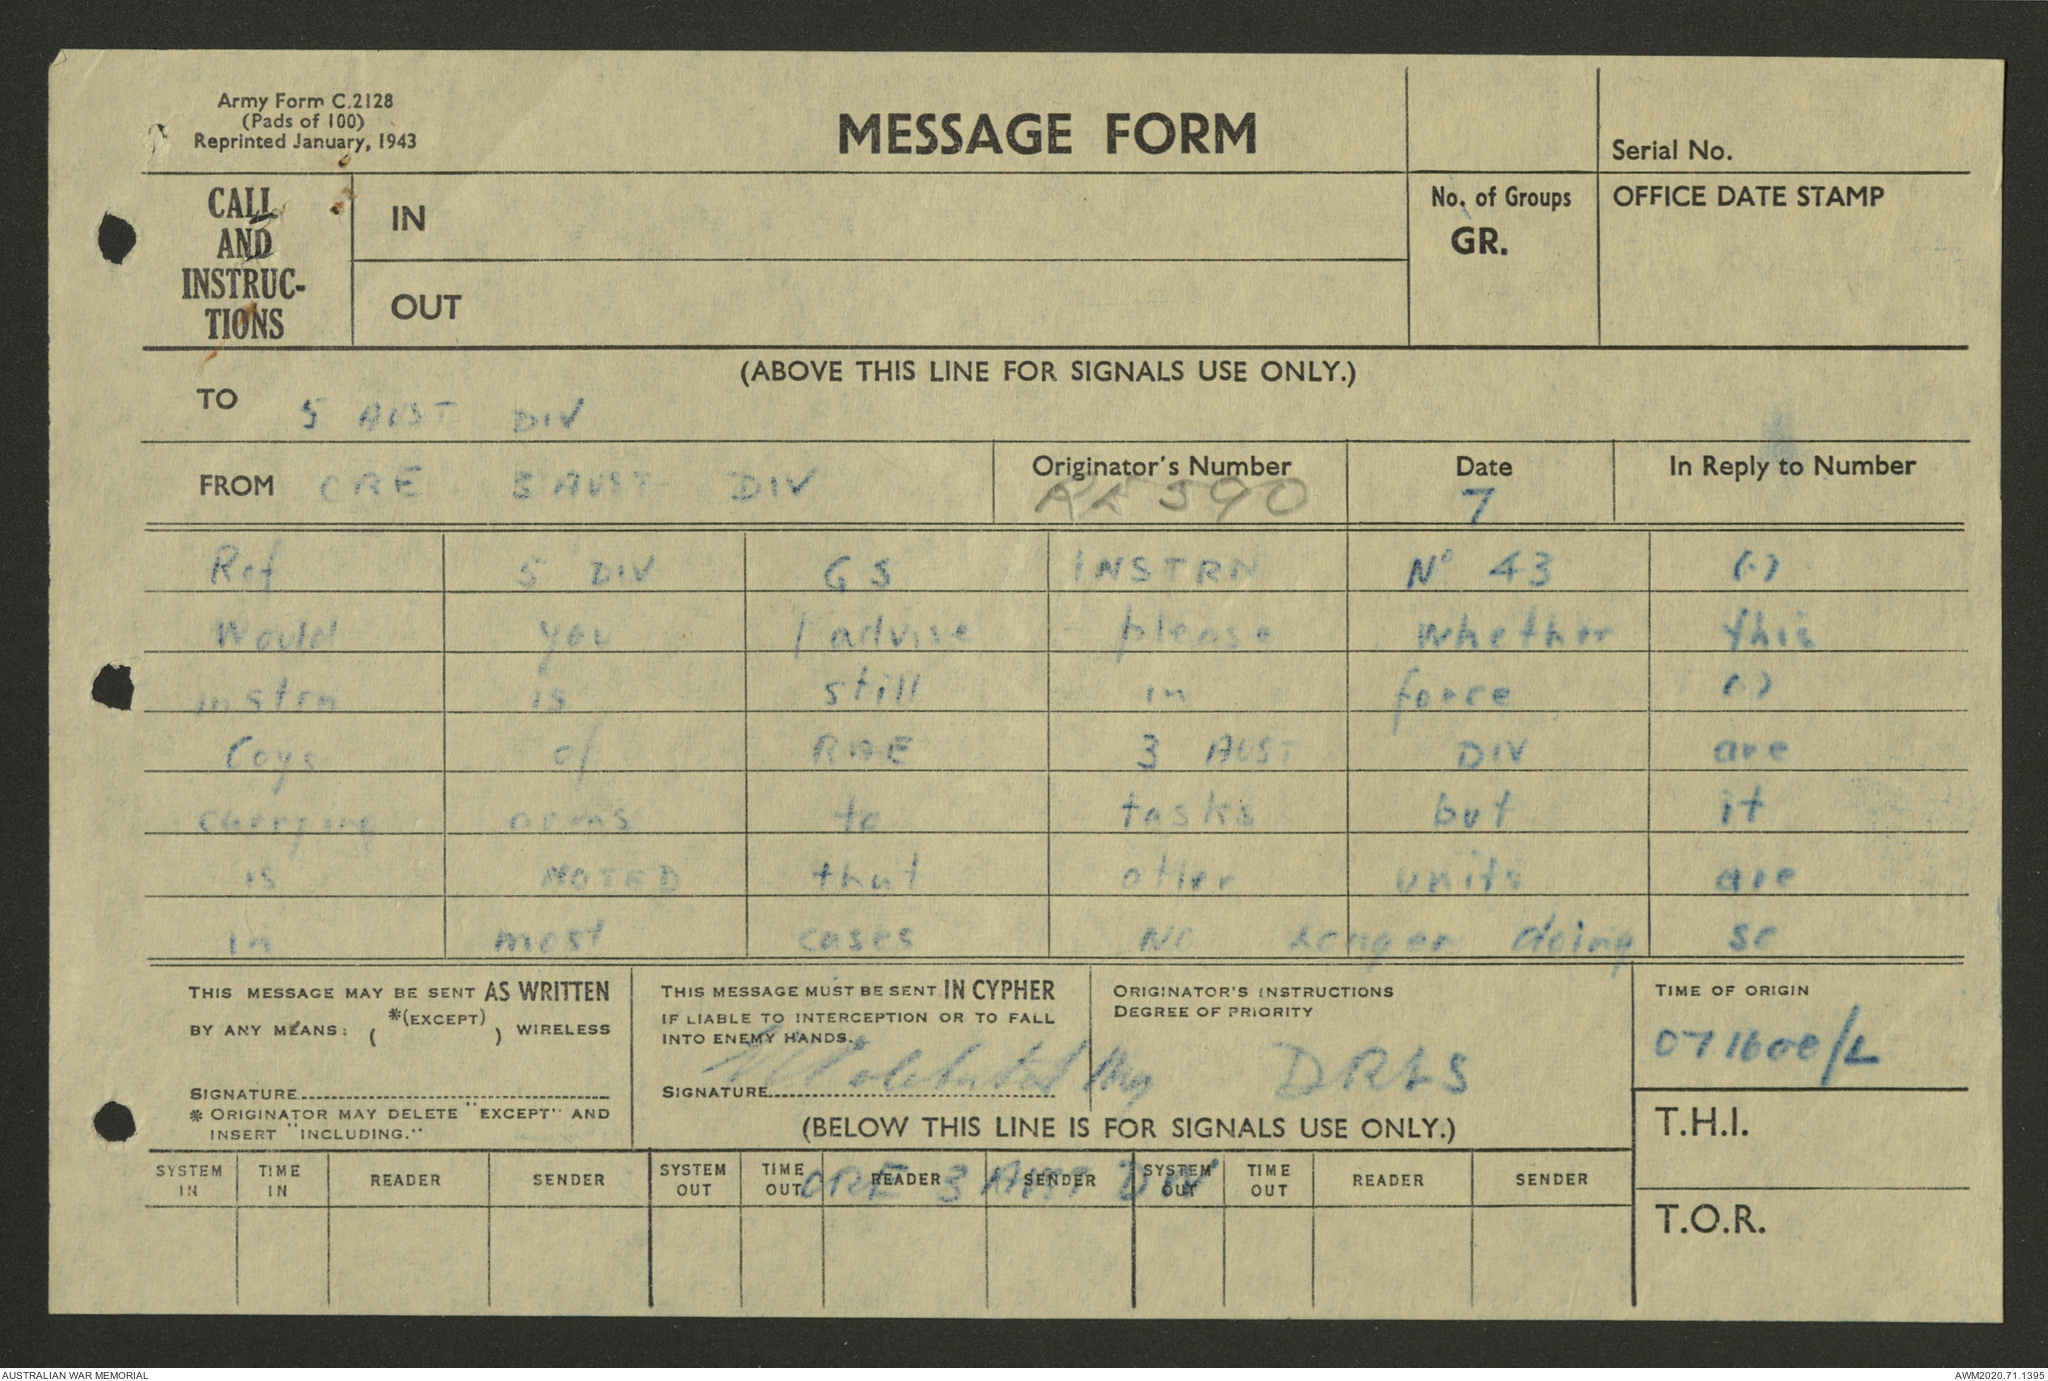 Army Form C.2128
(Pads of 100)
Reprinted January, 1943
MESSAGE FORM
Serial No.
CALL
AND
INSTRUC-
TIONS
IN
OUT
No. of Groups
GR.
OFFICE DATE STAMP
(ABOVE THIS LINE FOR SIGNALS USE ONLY.)
TO 5 AUST DIV
FROM CRE 3 AUST DIV
Originator's Number
590
Date
7
In Reply to Number
Ref 5 DIV GS INSTRN No 43 (.)
Would you advise please whether this
instrn is still in force (.)
Coys of RAE 3 AUST DIV are
carrying arms to tasks but it
is NOTED that other units are
in most cases No longer doing so
THIS MESSAGE MAY BE SENT AS WRITTEN
BY ANY MEANS: ( *(EXCEPT) ) WIRELESS
SIGNATURE
* ORIGINATOR MAY DELETE "EXCEPT" AND
INSERT "INCLUDING."
THIS MESSAGE MUST BE SENT IN CYPHER
IF LIABLE TO INTERCEPTION OR TO FALL
INTO ENEMY HANDS.
SIGNATURE
ORIGINATOR'S INSTRUCTIONS
DEGREE OF PRIORITY
DRLS
TIME OF ORIGIN
071600/L
(BELOW THIS LINE IS FOR SIGNALS USE ONLY.)
T.H.I.
SYSTEM IN TIME IN READER SENDER SYSTEM OUT TIME OUT READER SENDER SYSTEM OUT TIME OUT READER SENDER
CRE 3 AUST DIV
T.O.R.
AUSTRALIAN WAR MEMORIAL
AWM2020.71.1395